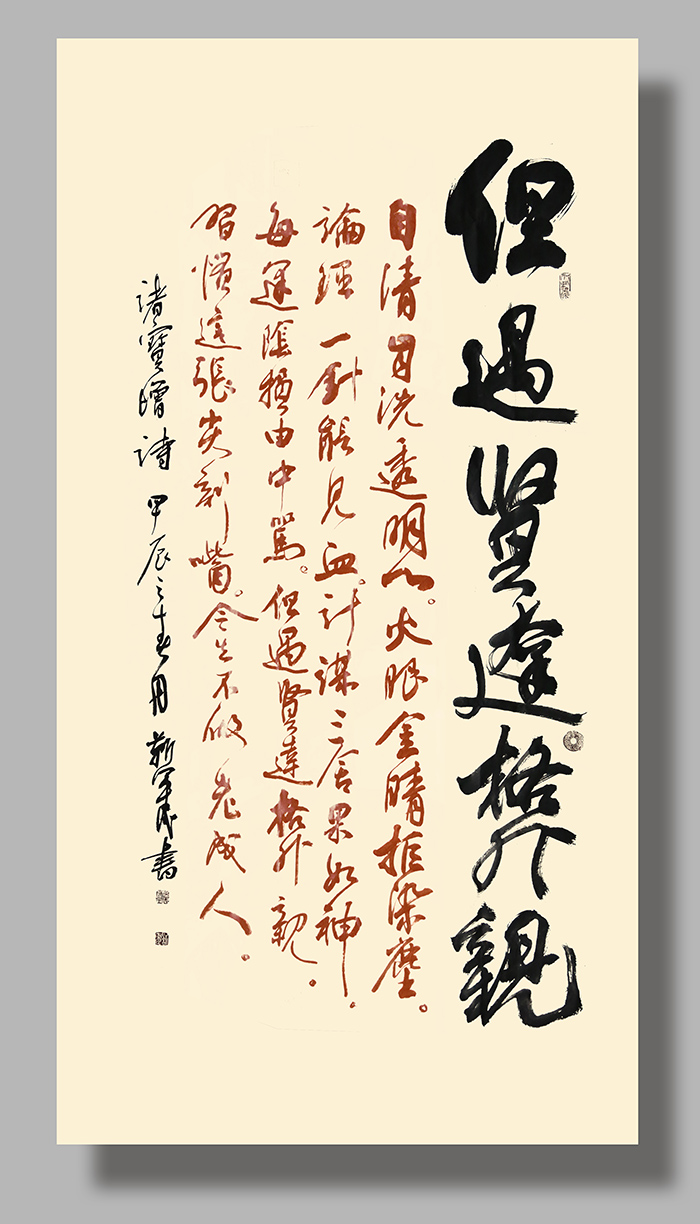 但遇賢達格外親
自清自洗透明心。火眼金睛拒染塵。
論理一針能見血。計謀三舍果如神。
每逢陰損由中罵。但遇賢達格外親。
習慣這張尖利嘴。今生不做老成人。
諸寶增詩 甲辰之春月 軍成書